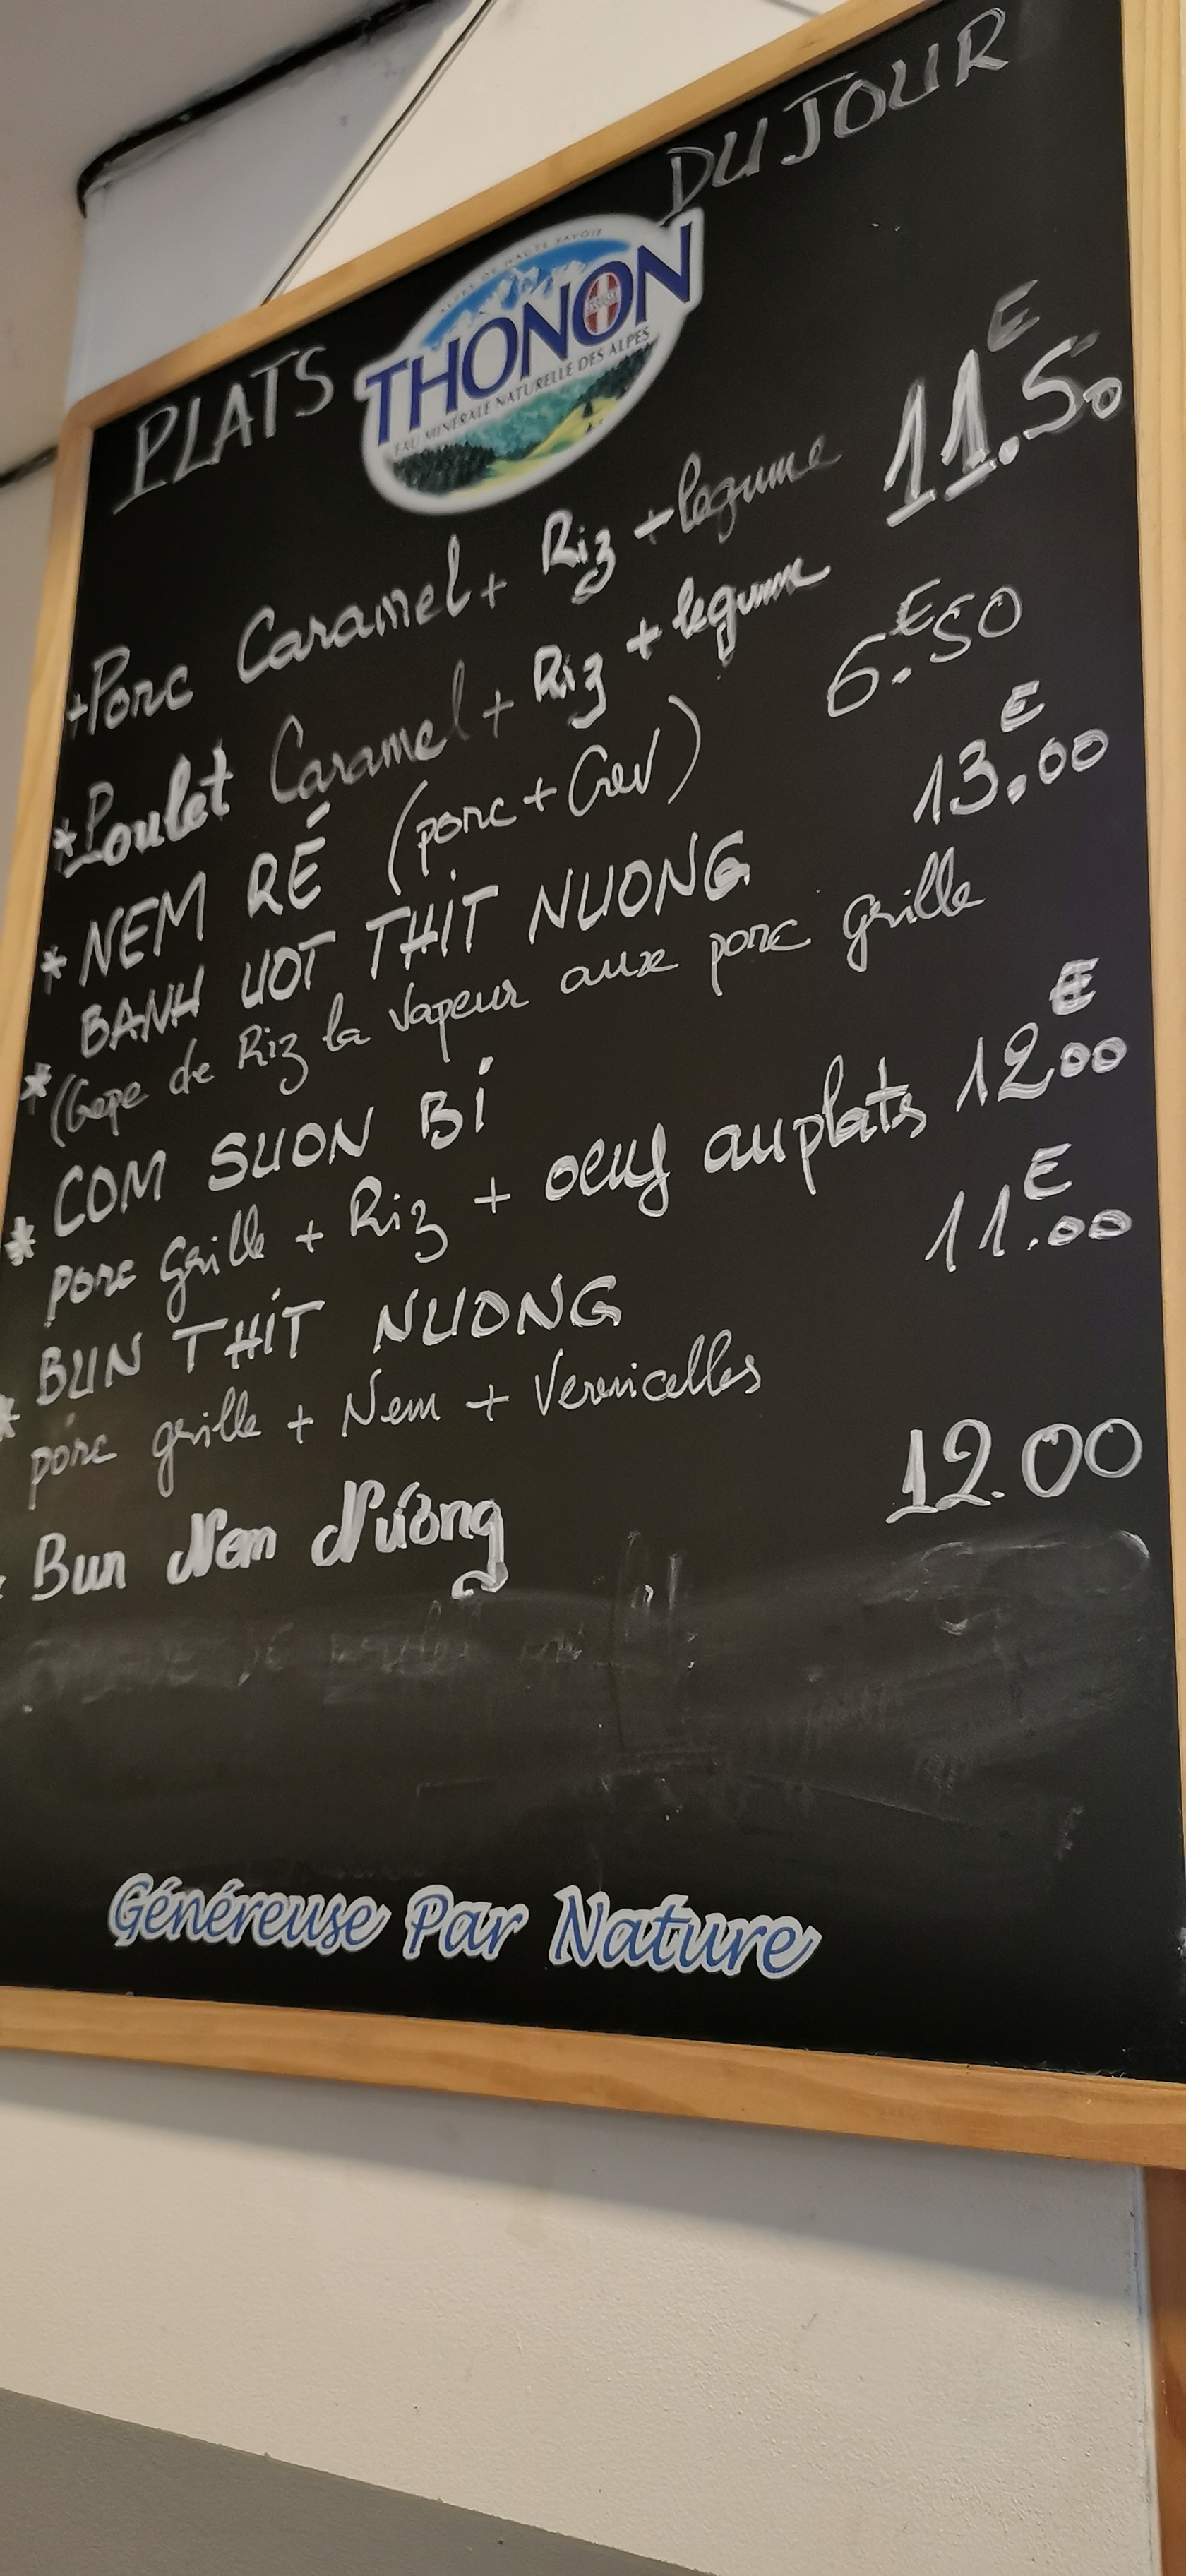 PLATS DU JOUR
ALPES DE HAUTE SAVOIE
THONON
EAU MINÉRALE NATURELLE DES ALPES
+ Porc Caramel + Riz + legume 11.50 E
* Poulet Caramel + Riz + legume
* NEM RÉ (porc + Crev) 6.50 E
BANH UOT THIT NUONG 13.00 E
* (Crepe de Riz la vapeur aux porc grille
* COM SUON BÍ
porc Grille + Riz + oeuf au plats 12.00 E
* BUN THIT NUONG 11.00 E
porc grille + Nem + Vermicelles
Bun Nem Núong 12.00
Généreuse Par Nature